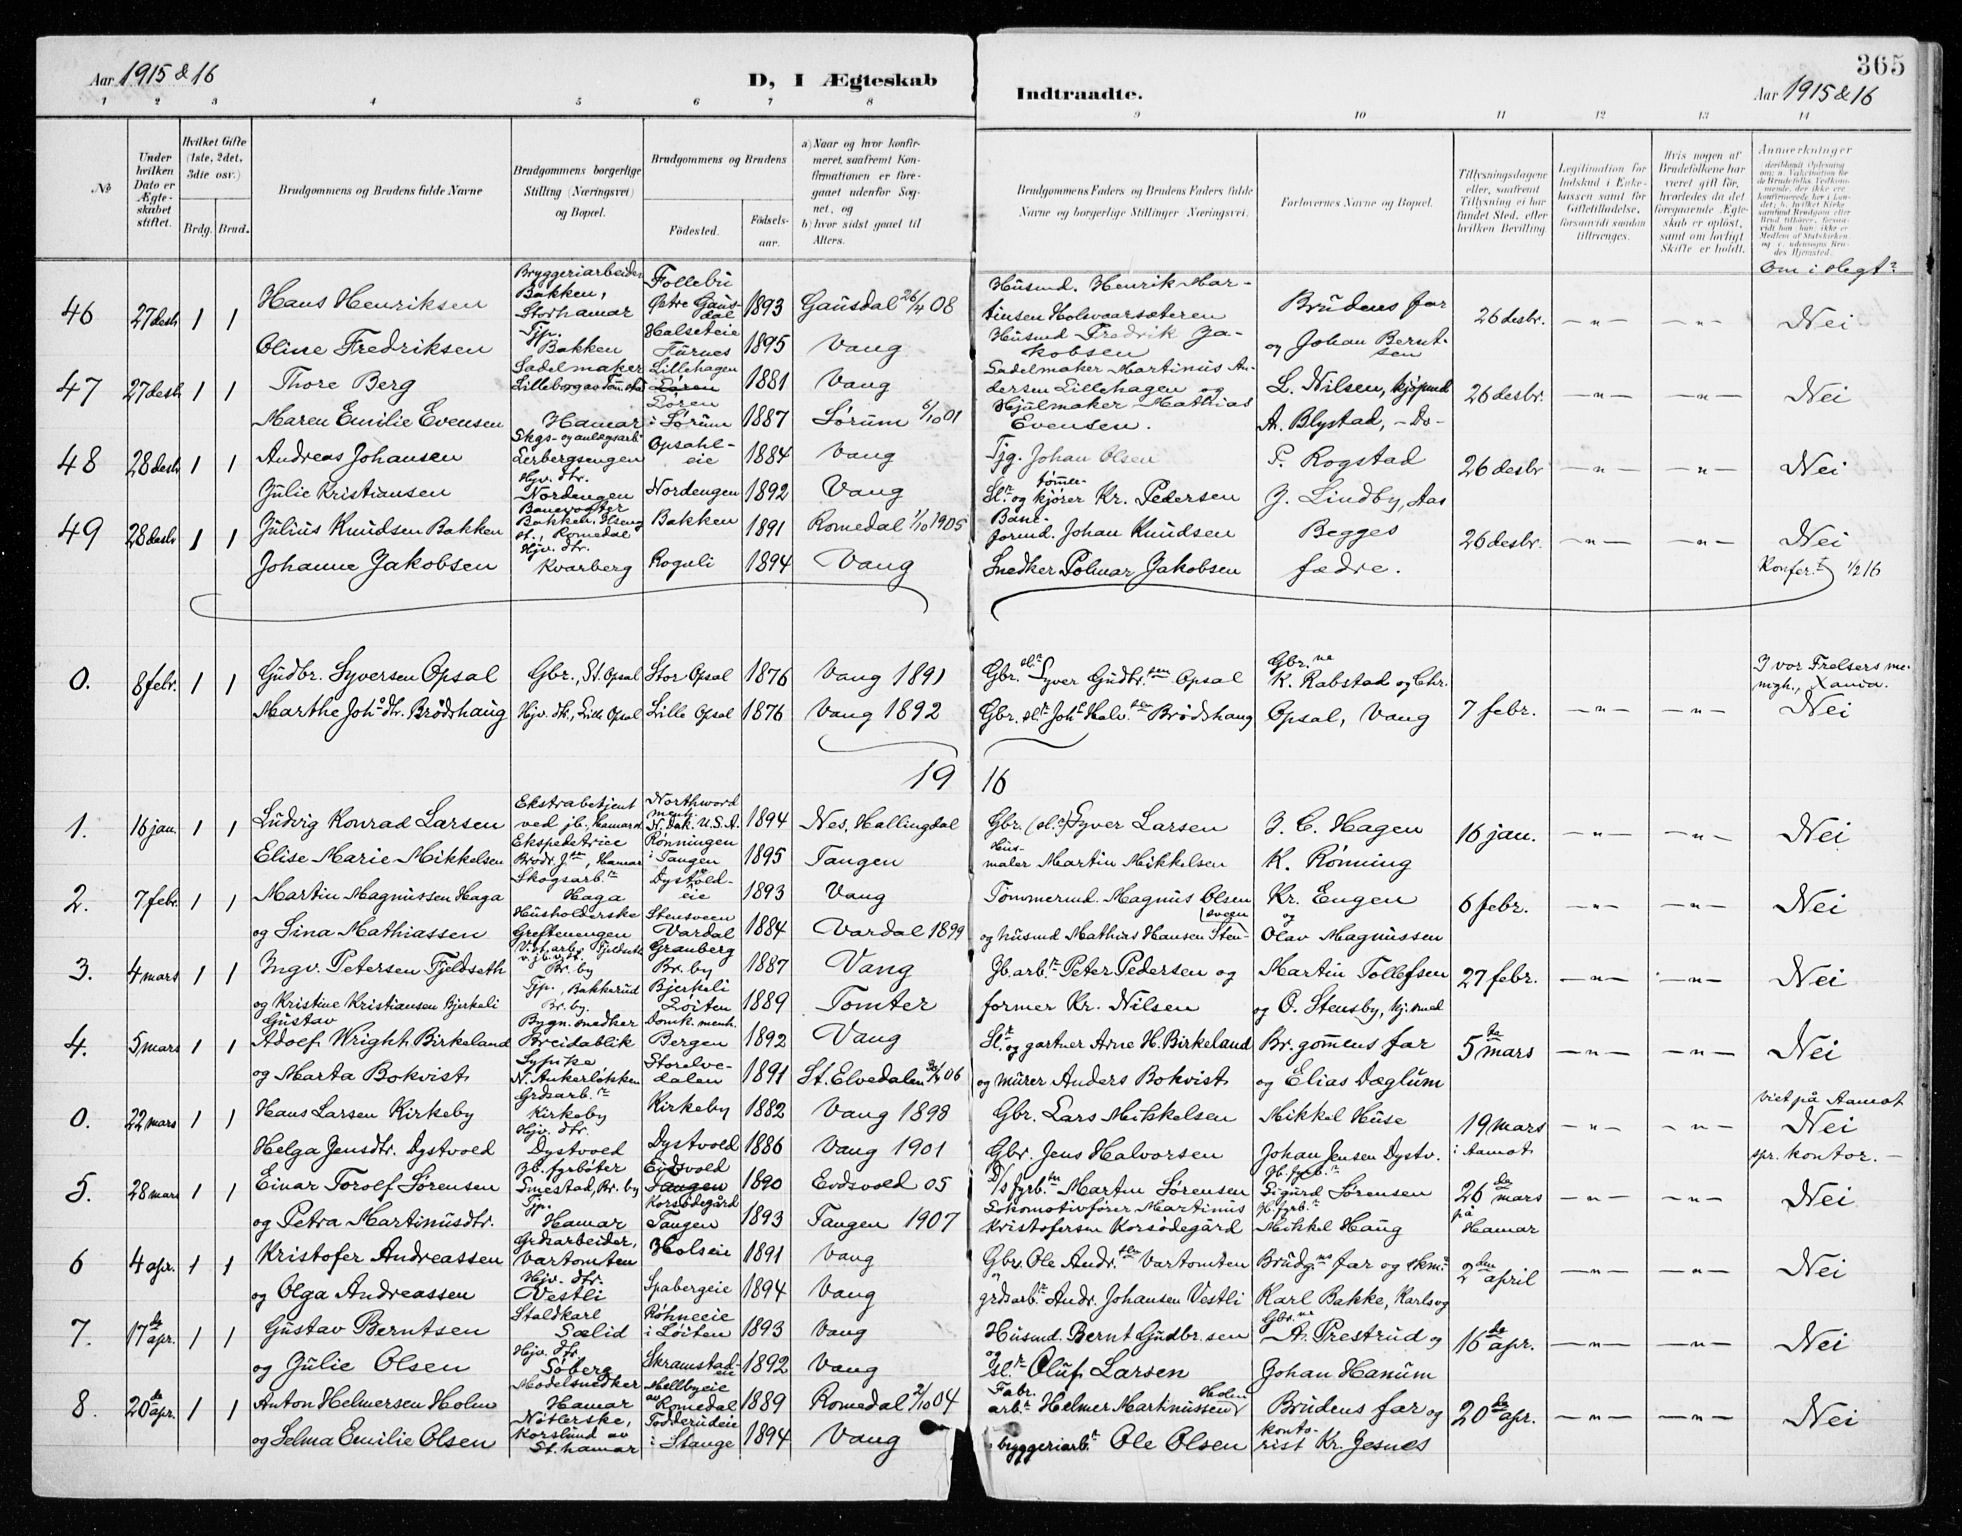 365
Aar 1915 & 16
D, I Ægteskab
Indtraadte.
Aar 1915 & 16
1 2 3 4 5 6 7 8 9 10 11 12 13 14
No
Under hvilken Dato er Ægteskabet stiftet.
Hvilket Gifte (1ste, 2det, 3die osv.)
Brdg. Brud.
Brudgommens og Brudens fulde Navne
Brudgommens borgerlige Stilling (Næringsvei) og Bopæl.
Brudgommens og Brudens
Födested.
Födselsaar.
a) Naar og hvor konfirmeret, saafremt Konfirmationen er foregaaet udenfor Sognet, og
b) hvor sidst gaaet til Alters.
Brudgommens Faders og Brudens Faders fulde Navne og borgerlige Stillinger Næringsvei.
Forlovernes Navne og Bopæl.
Tillysningsdagene eller, saafremt Tillysning ei har fundet Sted, efter hvilken Bevilling.
Legitimation for Indskud i Enkekassen samt for Giftetilladelse, forsaavidt saadan tiltrænges.
Hvis nogen af Brudefolkene har været gift før, hvorledes da det foregaaende Ægteskab er opløst, samt om lovligt Skifte er holdt.
Anmerkninger
Om i slegt?
46 27 desbr 1 1 Hans Henriksen Bryggeriarbeider Bakken, Storhamar Follebu Østre Gausdal 1893 Gausdal 26/4 08 Husmd. Henrik Martinsen Holvaarsæteren Brudens far 26 desbr. —"— —"— Nei
Oline Fredriksen Tjp. Bakken Halseteie Furnes 1895 Vang Husmd Fredrik Jakobsen og Johan Berntsen
47 27 desbr 1 1 Thore Berg Sadelmaker Lillehagen 1881 Vang Sadelmaker Martinus Andersen Lillehagen og L. Nilsen, kjøpmd 26 desbr. —"— —"— Nei
Maren Emilie Evensen Hamar i Sørum 1887 Sørum 6/10 01 Hjulmaker Mathias Evensen. A. Blystad, —Do—
48 28 desbr 1 1 Andreas Johansen Skgs- og anlægsarb. Lerbergsengen Opsahleie 1884 Vang Tjg. Johan Olsen P. Rogstad 26 desbr —"— —"— Nei
Julie Kristiansen Hjv. dtr. Nordengen Nordengen 1892 Vang og kjører Kr. Pedersen J. Lindby, Aas
49 28 desbr 1 1 Julius Knudsen Bakken Banevogter Bakken, Ilseng st., Romedal Bakken 1891 Romedal 1/10 1905 Baneformd. Johan Knudsen Begges 26 desbr. —"— —"— Nei
Johanne Jakobsen Hjv. dtr. Kvarberg Roguli 1894 Vang Snedker Polmar Jakobsen fædre. Konfer. 1/2 16
0. 8 febr. 1 1 Gudbr. Syversen Opsal Gbr., St. Opsal Stor Opsal 1876 Vang 1891 Gbr. Syver Gudbr.sen Opsal Gbr.ne K. Rabstad og Chr. I vor Frelsers menigh., Xania.
Marthe Joh.dtr. Brødshaug Hjv. dtr., Lille Opsal Lille Opsal 1876 Vang 1892 Gbr. Joh. Halv.sen Brødshaug Opsal, Vang 7 febr. —"— —"— Nei
19 16
1. 16 jan. 1 1 Ludvig Konrad Larsen Ekstrabetjent ved jb., Hamar Northwood N. Dak. U.S.A. 1894 Nes, Hallingdal Gbr. Syver Larsen J. C. Hagen 16 jan. —"— —"— Nei
Elise Marie Mikkelsen Ekspeditrice Hamar Rønningen i Tangen 1895 Tangen maler Martin Mikkelsen K. Rønning
2. 7 febr. 1 1 Martin Magnussen Haga Skogsarb. Haga Dystvoldeie 1893 Vang Tømmermd. Magnus Olsen Kr. Engen 6 febr. —"— —"— Nei
og Lina Mathiassen Husholderske Greftenengen Stensveen Vardal 1884 Vardal 1899 og husmd Mathias Hansen Stensveen og Olav Magnussen
3. 4 mars 1 1 Ingv. Petersen Fjeldseth Br. by Granberg Br. by 1887 Vang Jb. arb. Peter Pedersen og Martin Tollefsen 27 febr. —"— —"— Nei
og Kristine Kristiansen Bjerkeli Tjp., Bakkerud Br. by. Bjerkeli Løiten 1889 Tomter former Kr. Nilsen og O. Stensby, kj. smed
4. 5 mars 1 1 Adolf Gustav Wright Birkeland Bygn. snedker Breidablik Domk. menh. Bergen 1892 Vang og gartner Arne H. Birkeland Br. gommens far 5 mars —"— —"— Nei
og Marta Bokvist Sypike N. Ankerløkken Storelvedalen 1891 St. Elvedalen 06 og murer Anders Bokvist og Elias Dæglum
0. 22 mars 1 1 Hans Larsen Kirkeby Grdsarb. Kirkeby Kirkeby 1882 Vang 1898 Gbr. Lars Mikkelsen Mikkel Huse 19 mars —"— —"— viet på Aamot Nei
Helga Jensdtr. Dystvold Hjv. dtr. Dystvold Dystvold 1886 Vang 1901 Gbr. Jens Halvorsen Johan Jensen Dystv. i Aamot spr. kontor. —
5. 28 mars 1 1 Einar Torolf Sørensen Jb. fyrbøter Smestad, Br. by Eidsvold Tangen 1890 Evdsvold 05 Martin Sørensen Sigurd Sørensen 26 mars —"— —"— Nei
og Petra Martinusdtr. Tjp. Hamar Korsødegård Tangen 1893 Tangen 1907 Lokomotivfører Martinus Kristofersen Korsødegård Mikkel Haug på Hamar
6 4 apr. 1 1 Kristofer Andreassen Grdsarbeider, Vartomten Holseie 1891 Vang Gbr. Ole Andr.sen Vartomten Brudg.ns far og skm. 2den april —"— —"— Nei
og Olga Andreassen Hjv. dtr. Vestli Spabergeie 1894 Vang og grdsarb. Andr. Johansen Vestli Karl Bakke, Karls og
7. 17 apr. 1 1 Gustav Berntsen Staldkarl Sælid Røhneeie i Løiten 1893 Vang Husmd. Bernt Gudbr.sen Gbr.ne A. Prestrud og 16 apr. —"— —"— Nei
og Julie Olsen Hjv. dtr. Søberg Skramstadeie 1892 Vang og Oluf Larsen Johan Hanum
8. 20 apr. 1 1 Anton Helmersen Holm Modelsnedker Hamar Mellbyeie av Romedal 1889 Romedal 2/10 04 Fabr. arb. Helmer Martinussen Holm Brudens far og 20 apr. —"— —"— Nei
og Selma Emilie Olsen Korslund av St. hamar Todderudeie i Stange 1894 Vang bryggeriarb. Ole Olsen kontorist Kr. Jesnes